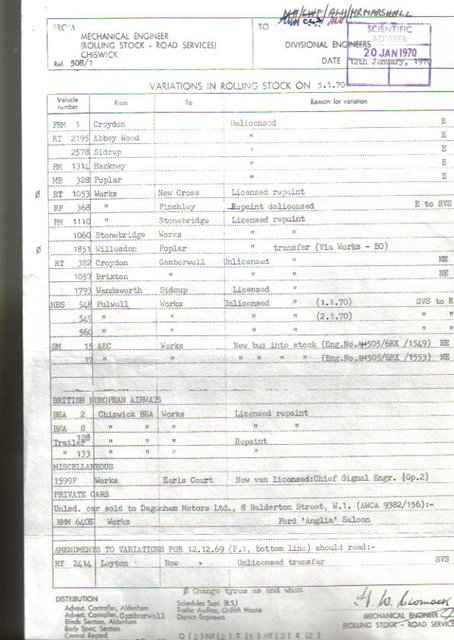 FROM
MECHANICAL ENGINEER
(ROLLING STOCK - ROAD SERVICES)
CHISWICK
Ref. 508/1
TO
DIVISIONAL ENGINEERS
DATE 12th January, 1970
SCIENTIFIC
ADVISER
20 JAN 1970
VARIATIONS IN ROLLING STOCK ON 5.1.70
Vehicle number From To Reason for variation
FRM 1 Croydon Delicensed E
RT 2195 Abbey Wood " E
2578 Sidcup " E
RM 1314 Hackney " E
MB 328 Poplar " E
Ø RT 1053 Works New Cross Licensed repaint
RF 368 " Finchley Repaint delicensed E to SVS
RM 1110 " Stonebridge Licensed repaint
1060 Stonebridge Works " "
Ø 1851 Willesden Poplar " transfer (Via Works - BO)
RT 382 Croydon Camberwell Unlicensed " NE
1057 Brixton " " " NE
1793 Wandsworth Sidcup Licensed "
MBS 548 Fulwell Works Unlicensed " (1.1.70) SVS to E
545 " " " " (2.1.70) " "
560 " " " " " " "
SM 15 AEC Works New bus into stock (Eng.No.AH505/6RX /1549) NE
17 " " " " " " (Eng.No.AH505/6RX /1553) NE
BRITISH EUROPEAN AIRWAYS
BEA 2 Chiswick BEA Works Licensed repaint
BEA 8 " " " " "
Trailer 128 " " " Repaint
" 133 " " " "
MISCELLANEOUS
1599F Works Earls Court New van licensed:Chief Signal Engr. [Gp.2)
PRIVATE CARS
Unlsd. car sold to Dagenham Motors Ltd., 8 Balderton Street, W.1. (AWCA 9382/156):-
NMM 640E Works Ford 'Anglia' Saloon
AMENDMENTS TO VARIATIONS FOR 12.12.69 (P.1, bottom line) should read:-
RT 2414 Leyton Bow Unlicensed transfer SVS
Ø Change tyres as and when
DISTRIBUTION
Advert. Controller, Aldenham
Advert. Controller, Camberwell
Blinds Section, Aldenham
Body Spec. Section
Central Record
Schedules Supt. (R.S.)
Traffic Audit, Griffith House
District Engineers
MECHANICAL ENGINEER
(ROLLING STOCK - ROAD SERVICE